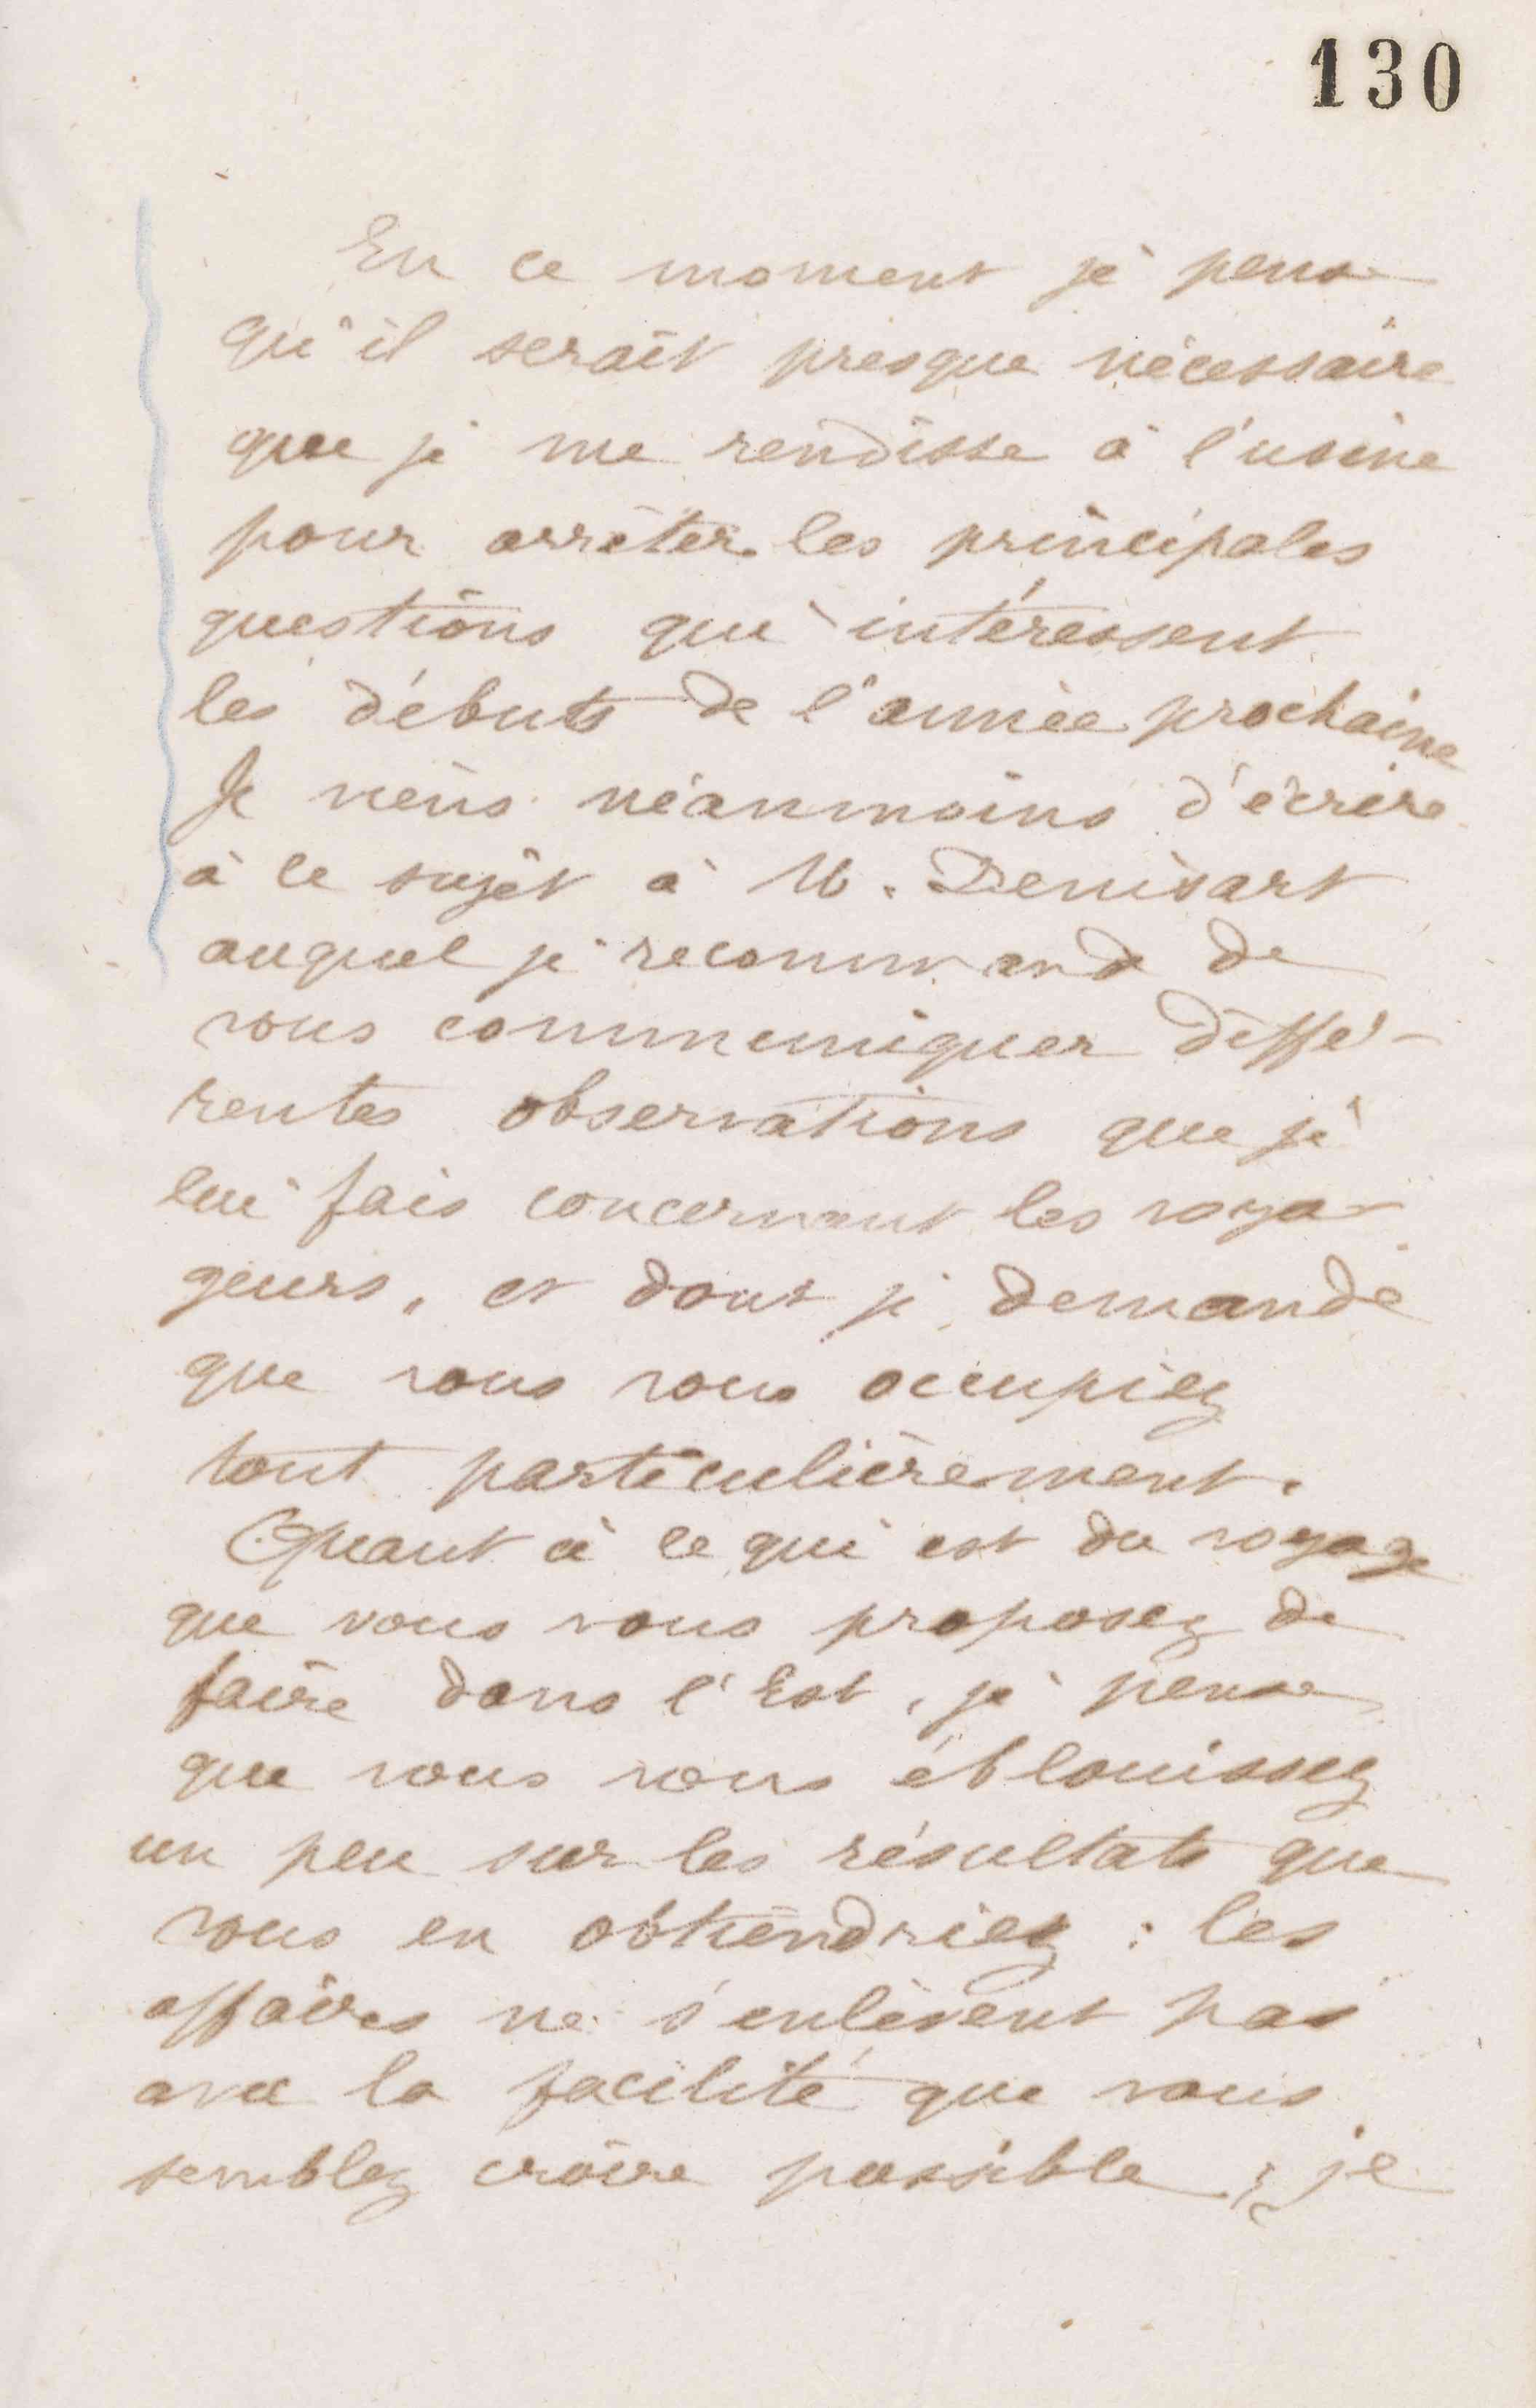 130
En ce moment je pense
qu'il serait presque nécessaire
que je me rendisse à l'usine
pour arrêter les principales
questions qui intéressent
les débuts de l'année prochaine
Je viens néanmoins d'écrire
à ce sujet à M. Denisart
auquel je recommande de
vous communiquer diffé-
rentes observations que je
lui fais concernant les voya-
geurs, et dont je demande
que vous vous occupiez
tout particulièrement.
Quant à ce qui est du voyage
que vous vous proposez de
faire dans l'Est, je pense
que vous vous éblouissez
un peu sur les résultats que
vous en obtiendriez : les
affaires ne s'enlèvent pas
avec la facilité que vous
semblez croire possible ; je